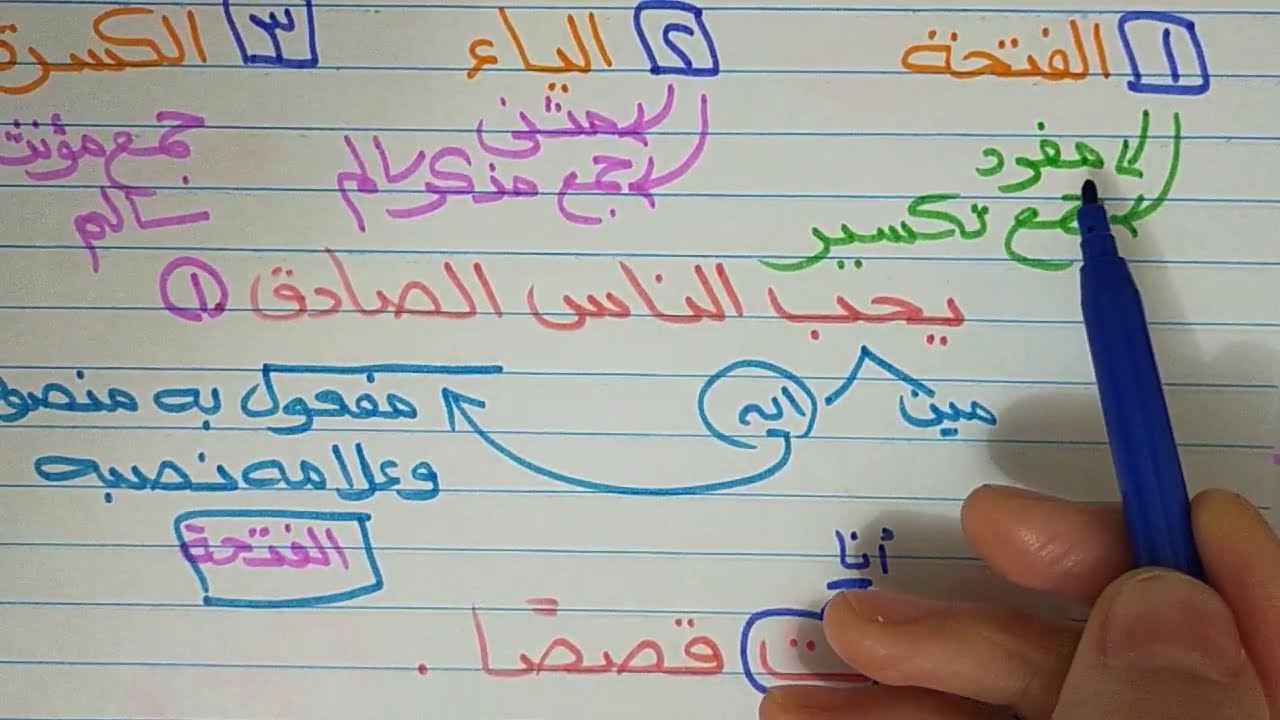 ١ الفتحة ٢ الياء ٣ الكسرة
مفرد مثنى جمع مؤنث
جمع تكسير جمع مذكر سالم سالم
يحب الناس الصادق ١
مين ايه مفعول به
وعلامه نصبه
الفتحة
أنا
ت قصصًا .